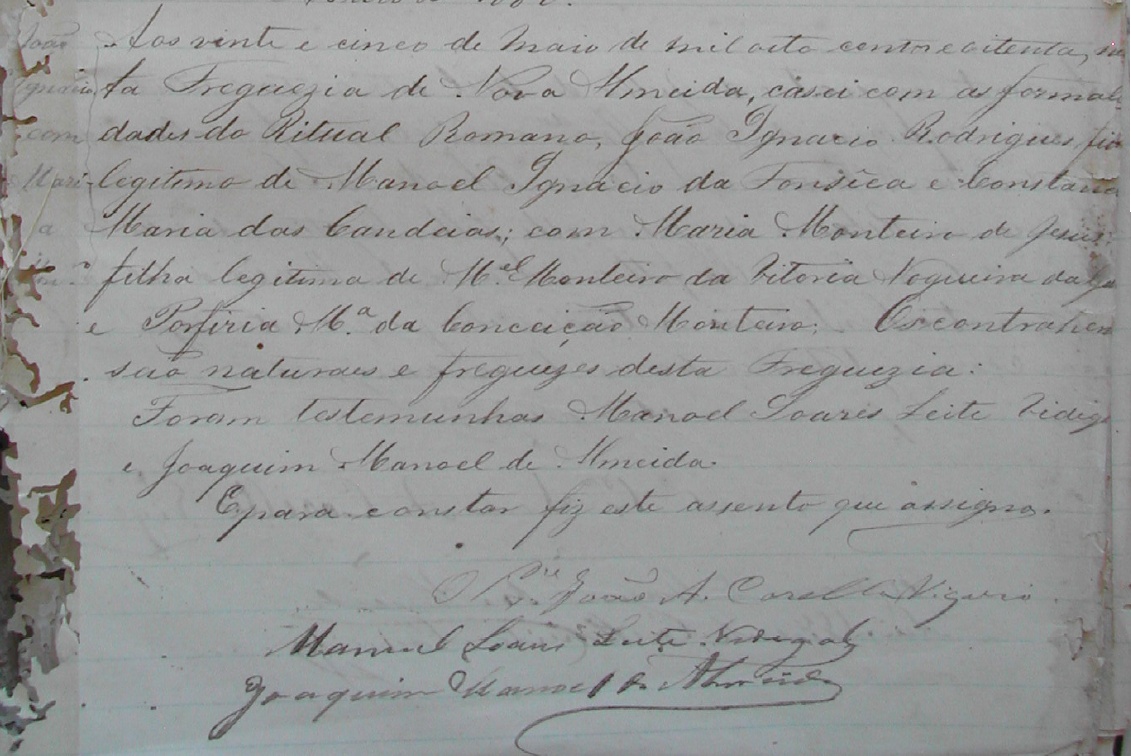 Aos vinte e cinco de Maio de mil oito centos e oitenta, nes
João
ta Freguezia de Nova Almeida, casei com as formali
Ignacio
dades do Ritual Romano, João Ignacio Rodrigues, fio
com
legitimo de Manoel Ignacio da Fonsêca e Constancia
Mari-
Maria das Candeias; com Maria Monteiro de Jesus:
a
filha legitima de M.el Monteiro da Vitoria Nogueira da
e Porfiria M.a da Conceição Monteiro. Os contrahen
são naturaes e freguezes desta Freguezia:
Foram testemunhas Manoel Soares Leite Vidig
e Joaquim Manoel de Almeida.
E para constar fiz este assento que assigno.
O P.re João A. Vigario
Manuel Soares Leite Vidigal
Joaquim Manoel de Almeida